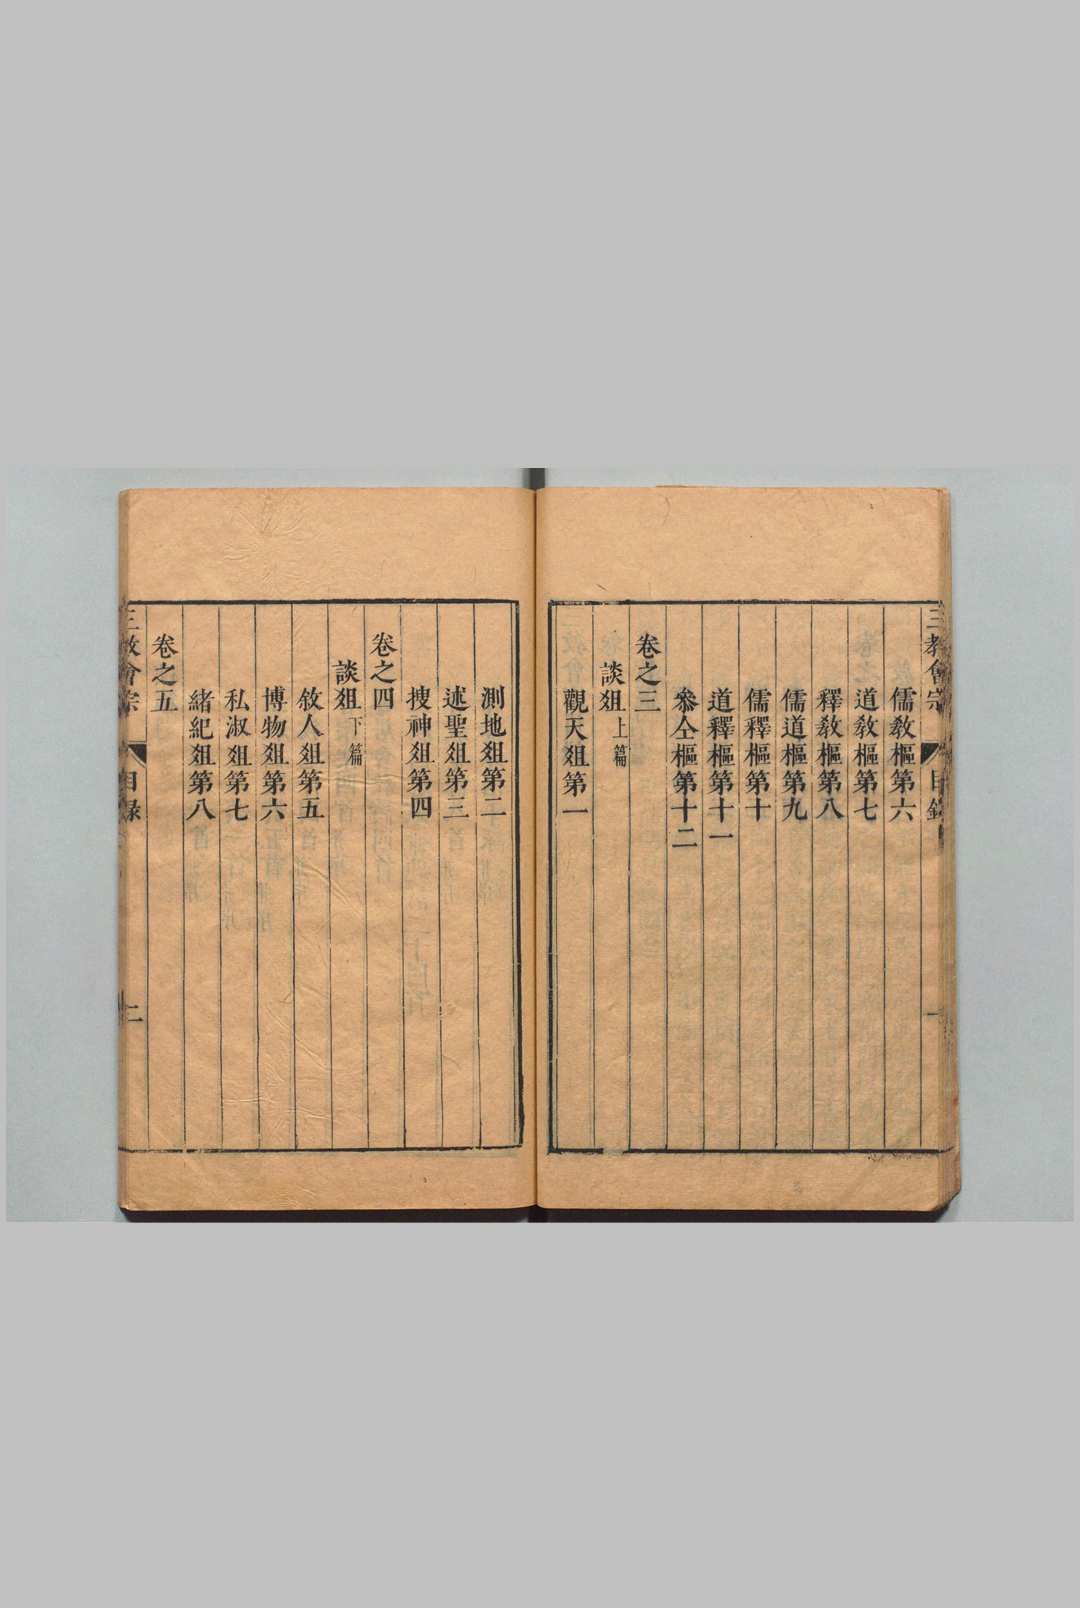 三教會宗 目錄 一
儒教樞第六
道教樞第七
釋教樞第八
儒道樞第九
儒釋樞第十
道釋樞第十一
叅仝樞第十二
卷之三
談俎上篇
觀天俎第一
測地俎第二
述聖俎第三
搜神俎第四
卷之四
談俎下篇
敘人俎第五
博物俎第六
私淑俎第七
緒紀俎第八
卷之五
三教會宗 目錄 二